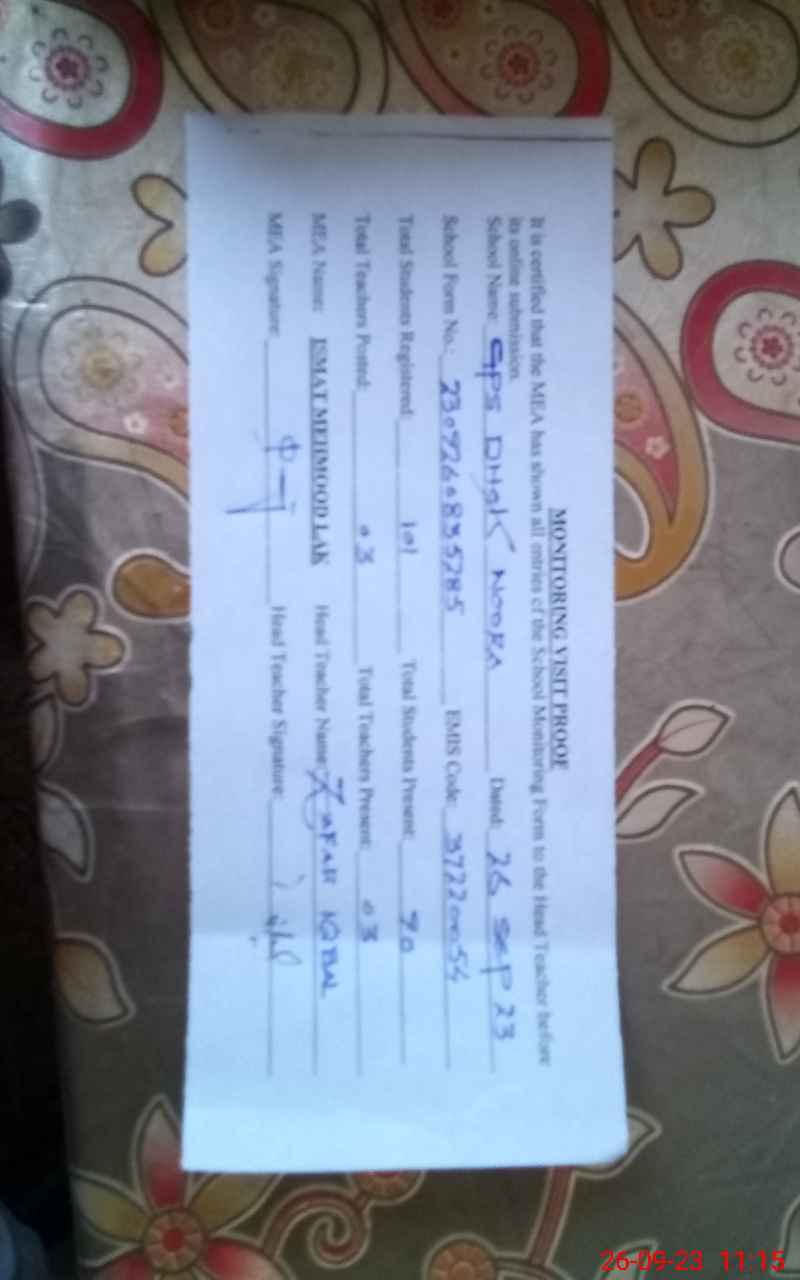 MONITORING VISIT PROOF
It is certified that the MEA has shown all entries of the School Monitoring Form to the Head Teacher before
its online submission.
School Name: GPS DHOK NOORA Dated: 26 SEP 23
School Form No.: EMIS Code:
Total Students Registered: 101 Total Students Present: 90
Total Teachers Posted: 03 Total Teachers Present: 03
MEA Name: ISMAT MEHMOOD LAK Head Teacher Name: ZAFAR IQBAL
MEA Signature: Head Teacher Signature:
26-09-23 11:15